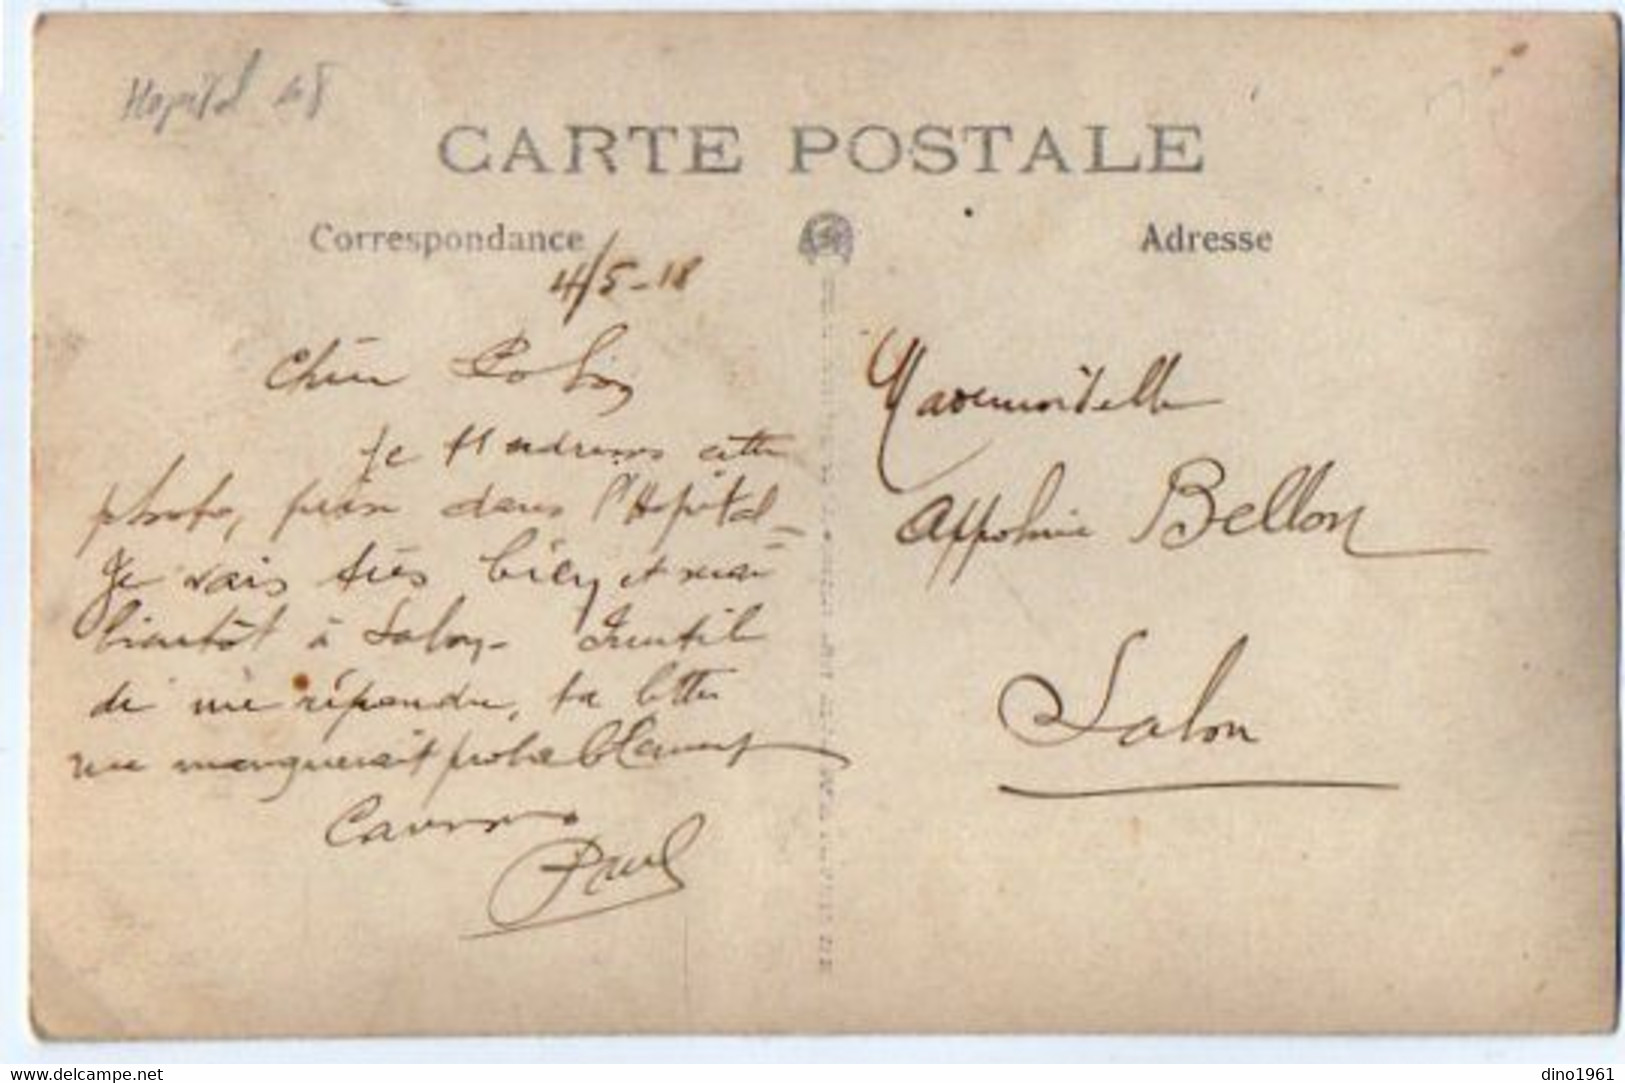 Hopital 48
CARTE POSTALE
Correspondance
Adresse
4/5-18
Je cette
photo, prise dans l'Hopital -
Je vais très bien et serai
bientôt à Salon - Inutile
de me répondre, ta lettre
me manquerait probablement
Paul
Mademoiselle
Appolonie Bellon
Salon
delcampe.net
dino1961